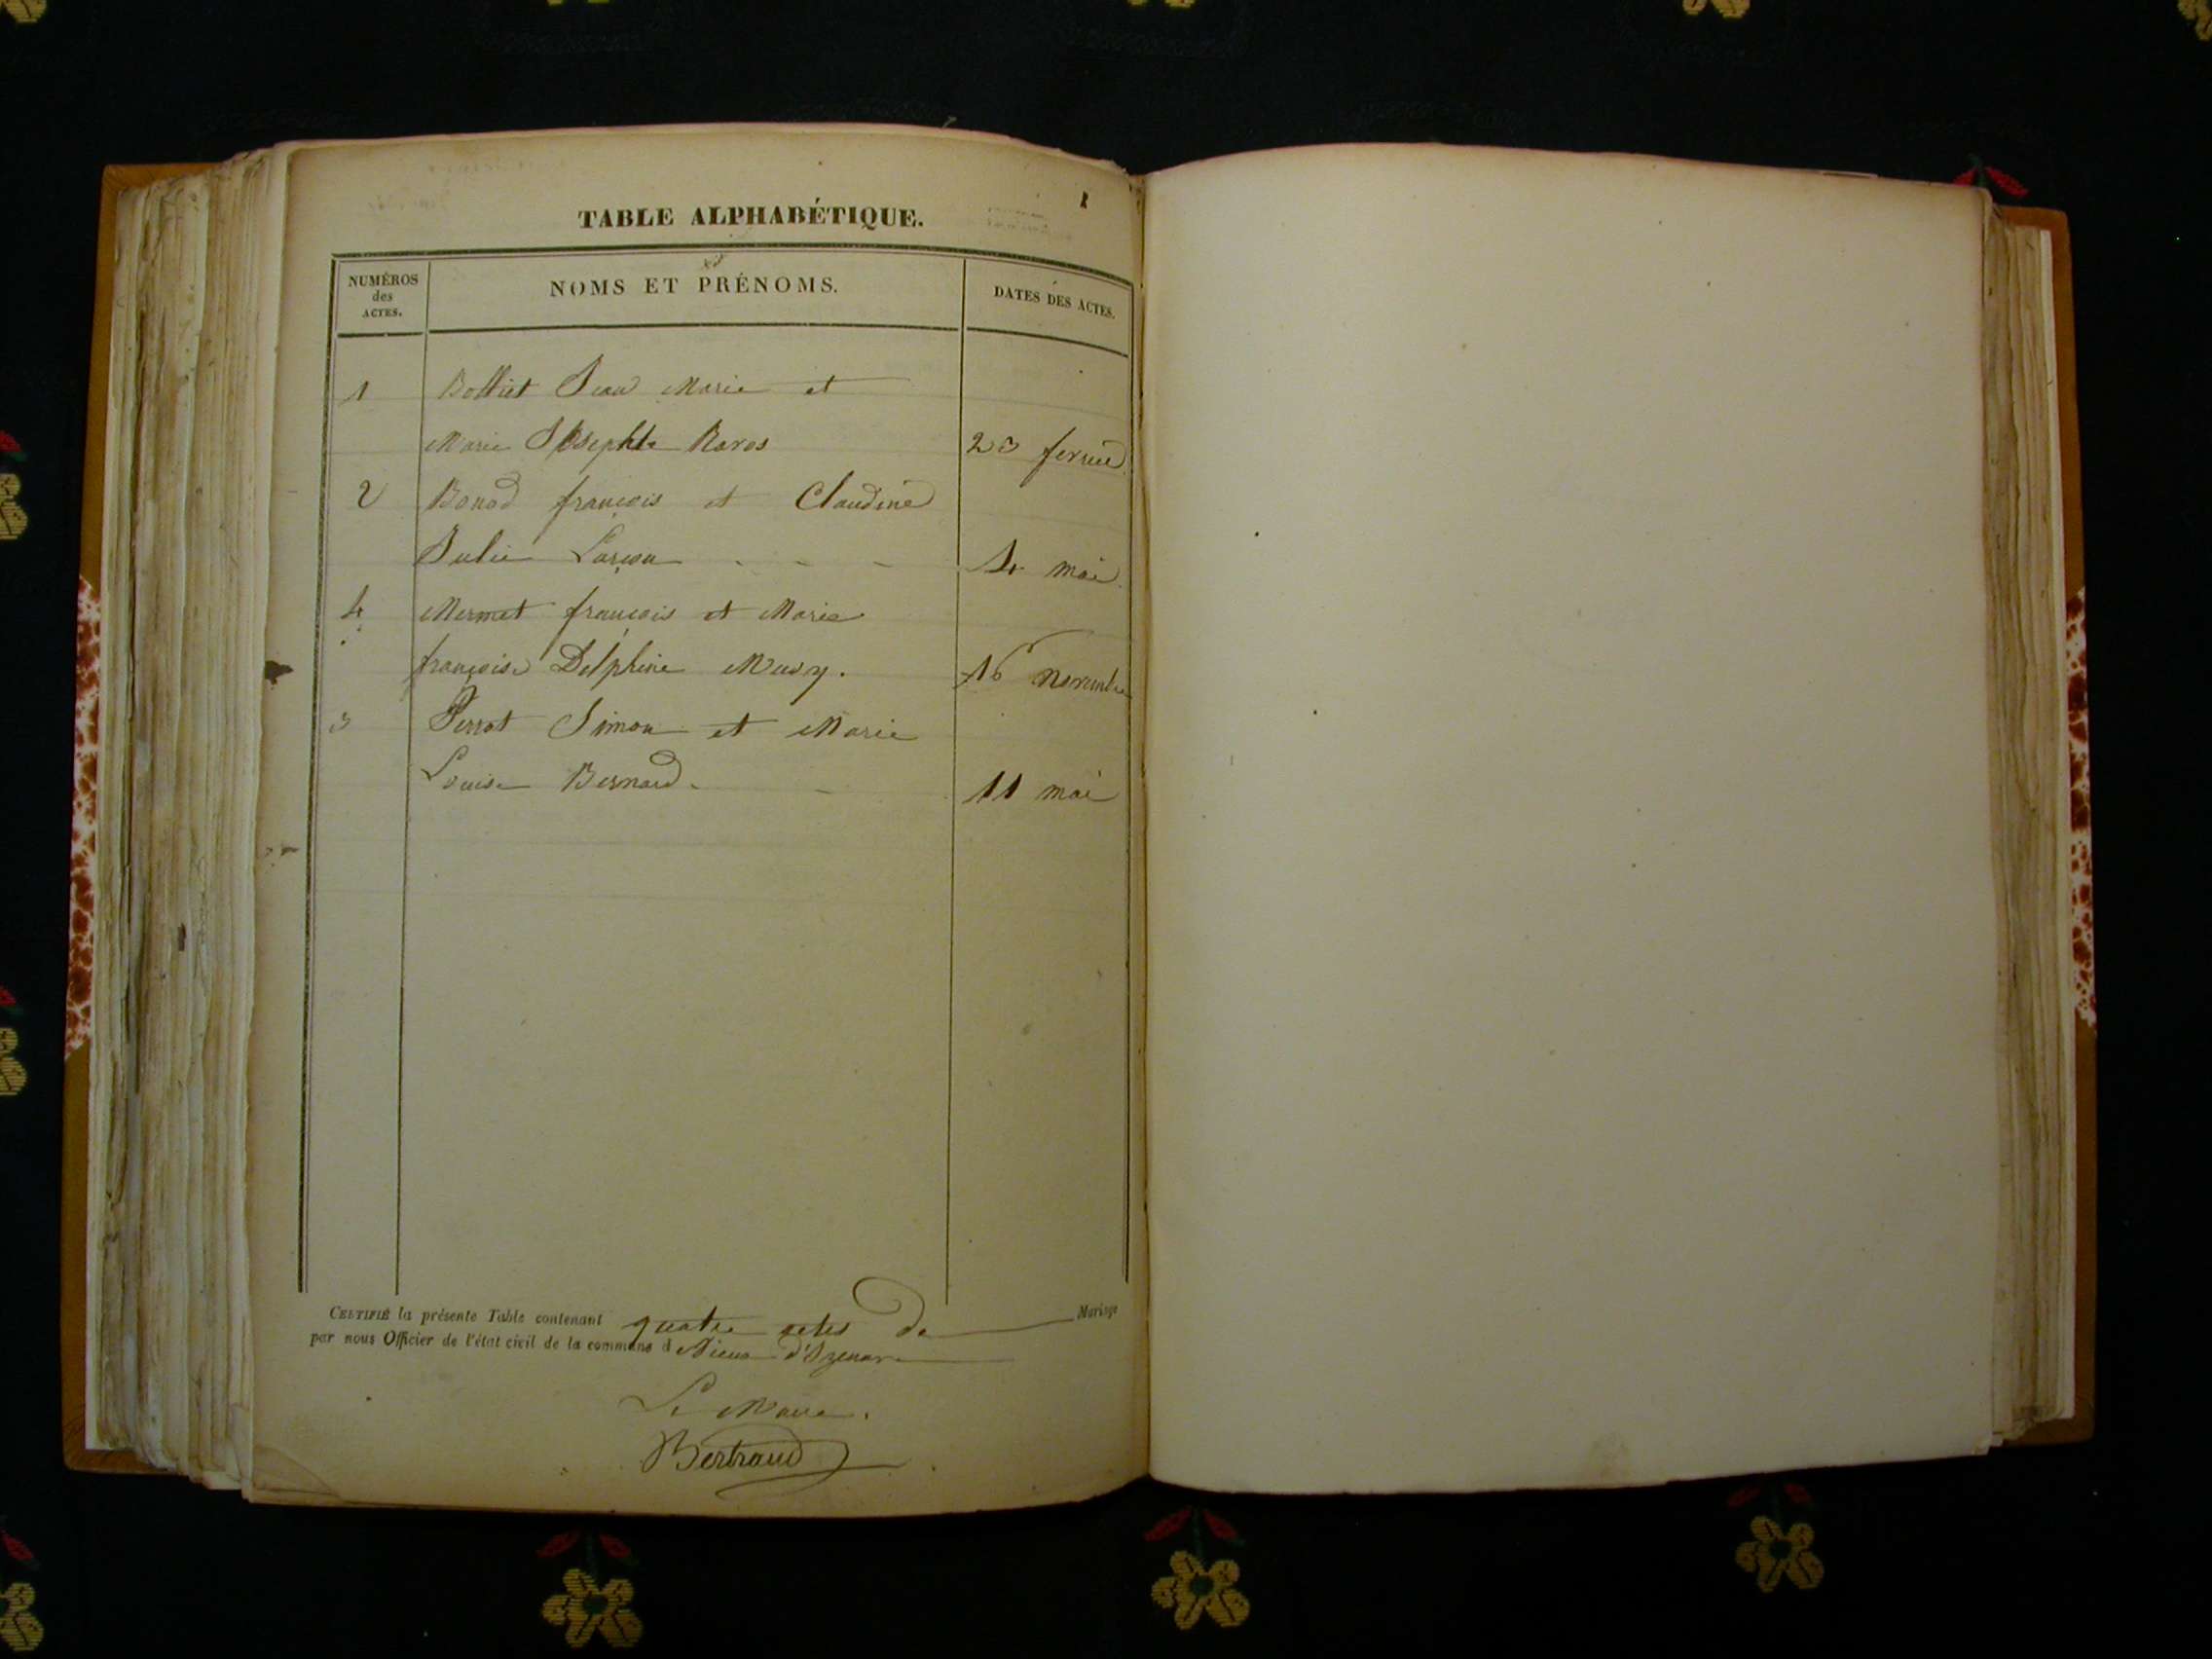 TABLE ALPHABÉTIQUE.
NUMÉROS des ACTES.
NOMS ET PRÉNOMS.
DATES DES ACTES.
1 Bottiet Jean Marie et
Marie Josephte Ravos 23 fevrier
2 Bonod françois et Claudine
Julie Larçon 4 mai
4 Mermet françois et Marie
françoise Delphine Musy. 16 novembre
3 Perrot Simon et Marie
Louise Bernard. 11 mai
CERTIFIÉ la présente Table contenant quatre actes de Mariage
par nous Officier de l'état civil de la commune d Vieux d'Izenave
Le Maire.
Bertrand